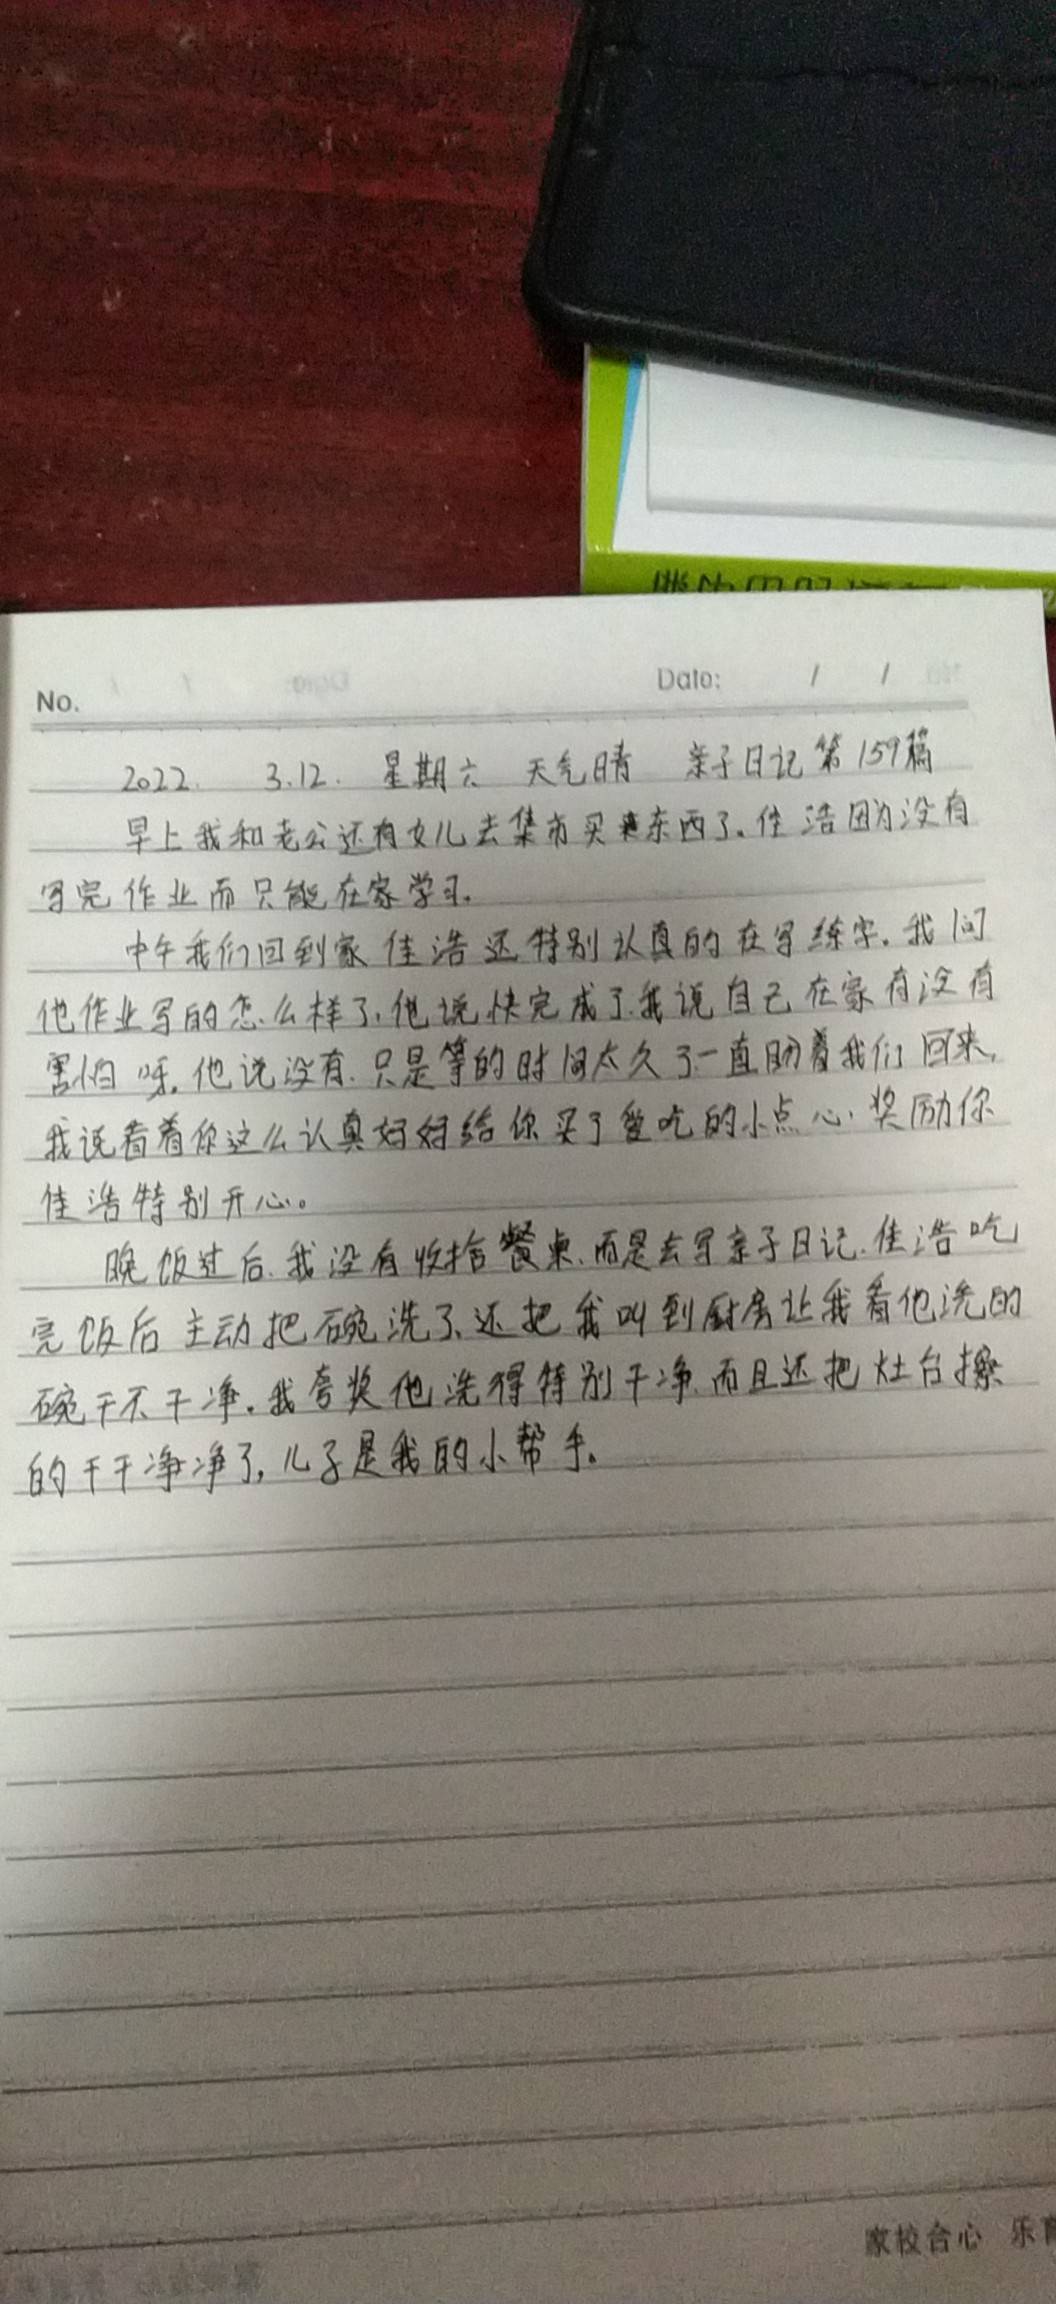 No.
Date: / /
2022. 3.12. 星期六 天气晴 亲子日记第159篇
早上我和老公还有女儿去集市买东西了。佳浩因为没有
写完作业而只能在家学习。
中午我们回到家佳浩还特别认真的在写练字。我问
他作业写的怎么样了,他说快完成了.我说自己在家有没有
害怕呀,他说没有.只是等的时间太久了一直盼着我们回来,
我说看着你这么认真妈妈给你买了爱吃的小点心.奖励你
佳浩特别开心。
晚饭过后.我没有收拾餐桌.而是去写亲子日记.佳浩吃
完饭后主动把碗洗了、还把我叫到厨房让我看他洗的
碗干不干净.我夸奖他洗得特别干净.而且还把灶台擦
的干干净净了,儿子是我的小帮手。
家校合心 乐